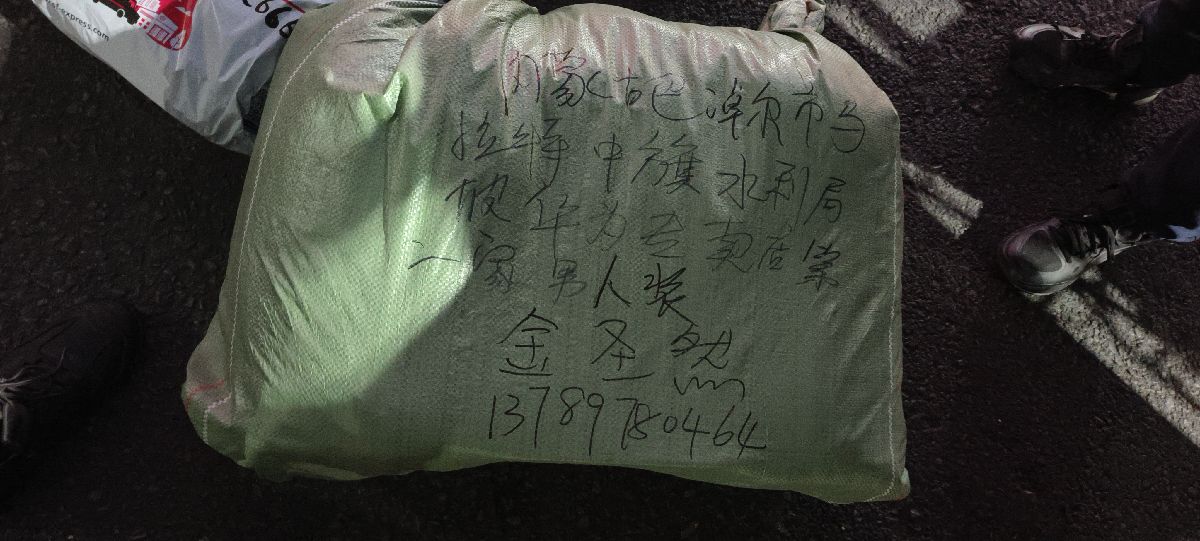 st-express.com
内蒙古巴淖尔市乌
拉特中旗水利局
坡华为专卖店旁
二家男人装
金圣然
13789780464